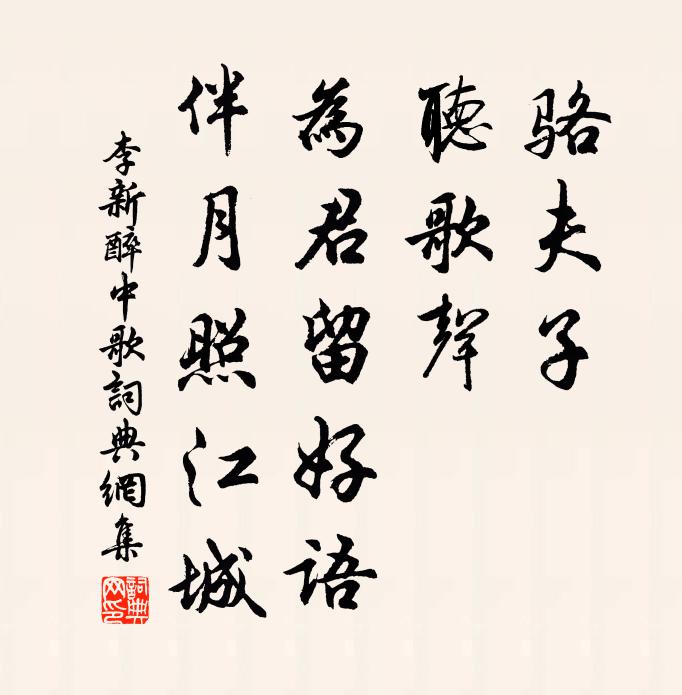 駱夫子
聽歌聲
為君留好語
伴月照江城
李新醉中歌詞典網集
詞典
网印